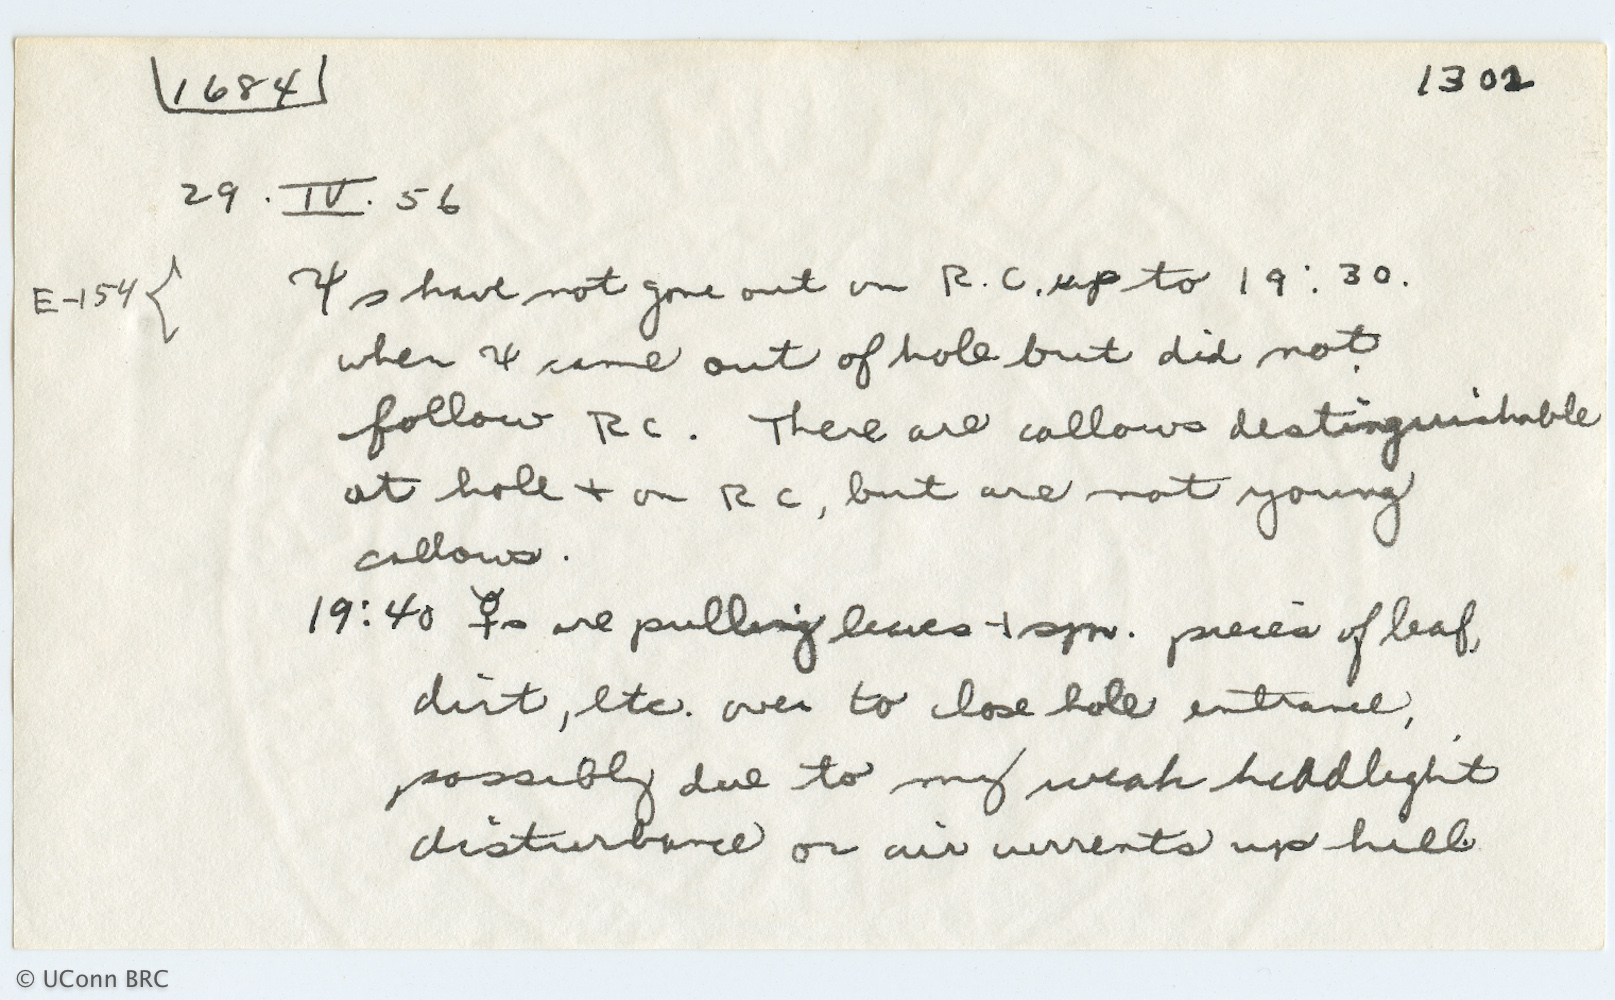 1684
1302
29 . IV . 56
E-154 {
Ψs have not gone out on R.C. up to 19:30.
when Ψ came out of hole but did not
follow RC. There are callows destinguishable
at hole + on RC, but are not young
callows.
19:40 ☿s are pulling leaves + sm. pieces of leaf,
dirt, etc. over to close hole entrance,
possibly due to my weak headlight
disturbance or air currents up hill
© UConn BRC